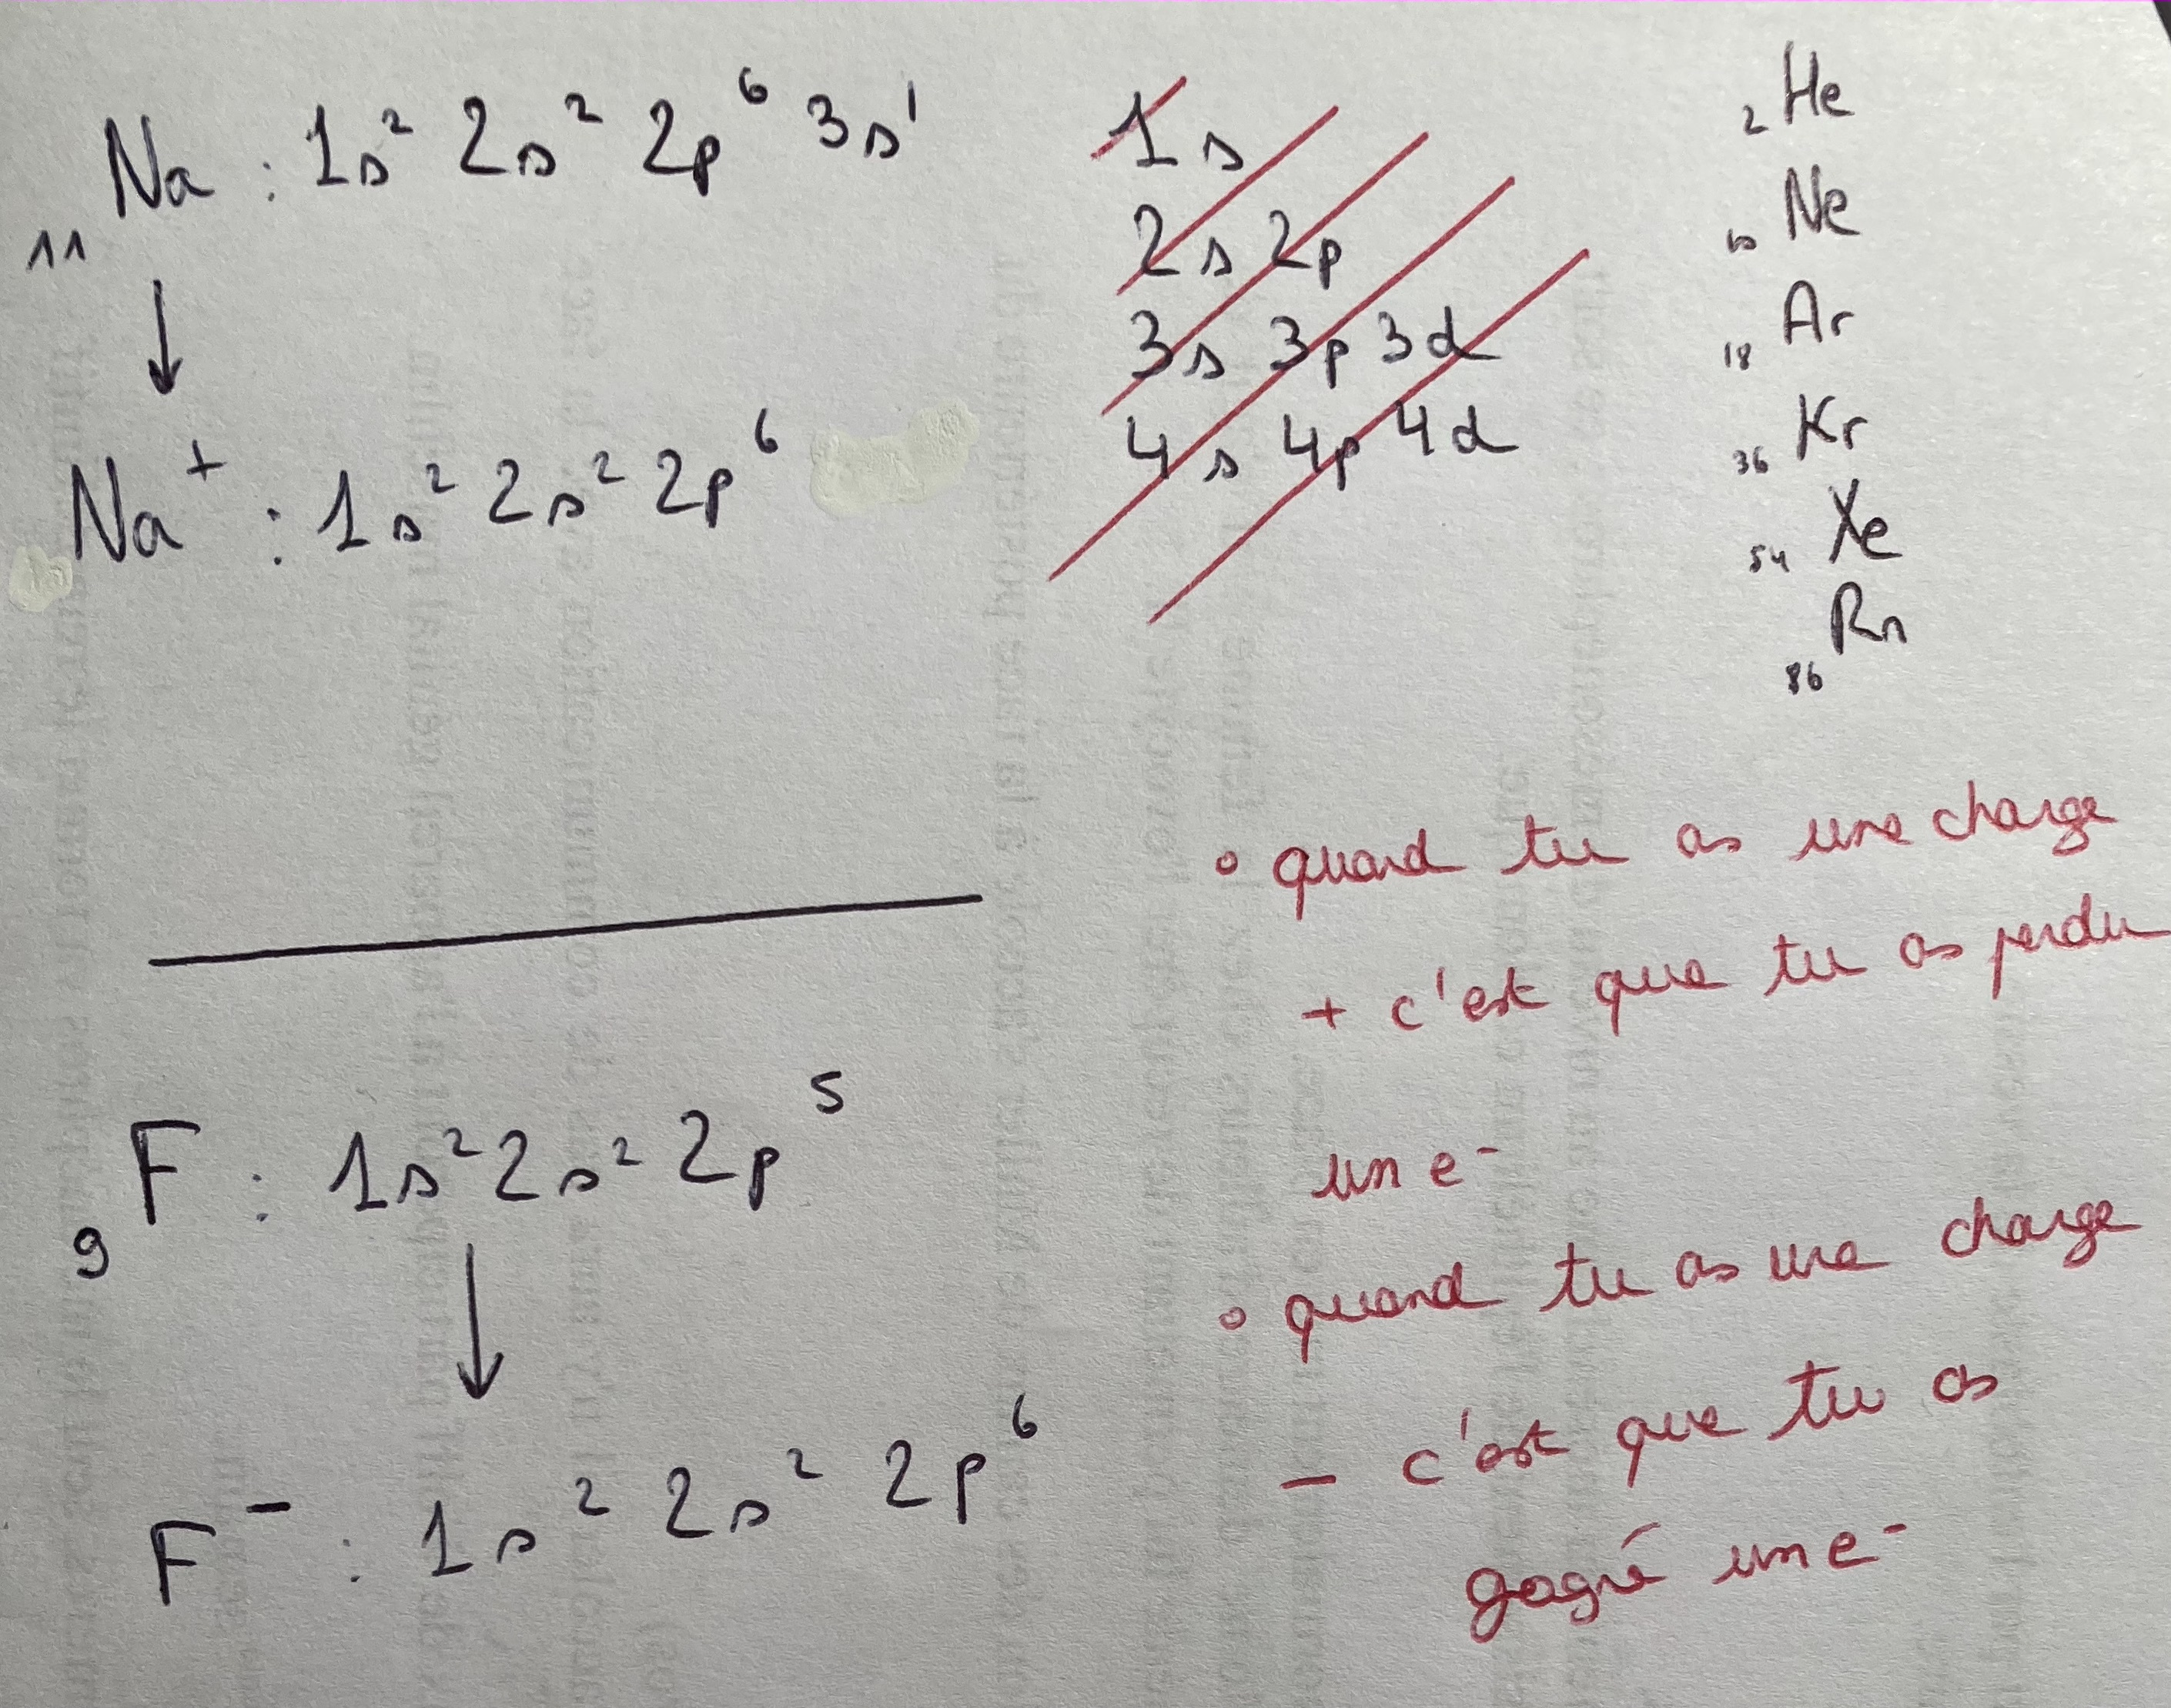 ₁₁Na : 1s² 2s² 2p⁶ 3s¹
↓
Na⁺ : 1s² 2s² 2p⁶
1s
2s 2p
3s 3p 3d
4s 4p 4d
₂He
₁₀Ne
₁₈Ar
₃₆Kr
₅₄Xe
₈₆Rn
₉F : 1s² 2s² 2p⁵
↓
F⁻ : 1s² 2s² 2p⁶
• quand tu as une charge
+ c'est que tu as perdu
un e⁻
• quand tu as une charge
- c'est que tu as
gagné un e⁻